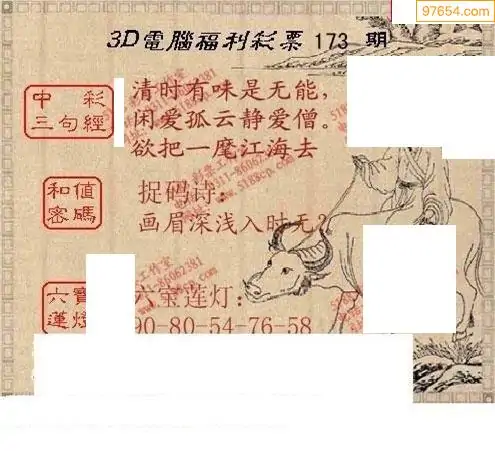 97654.com
3D電腦福利彩票 173 期
中彩
三句經
清时有味是无能,
闲爱孤云静爱僧。
欲把一麾江海去
和值
密碼
捉码诗:
画眉深浅入时无?
六寶
蓮燈
六宝莲灯:
90-80-54-76-58